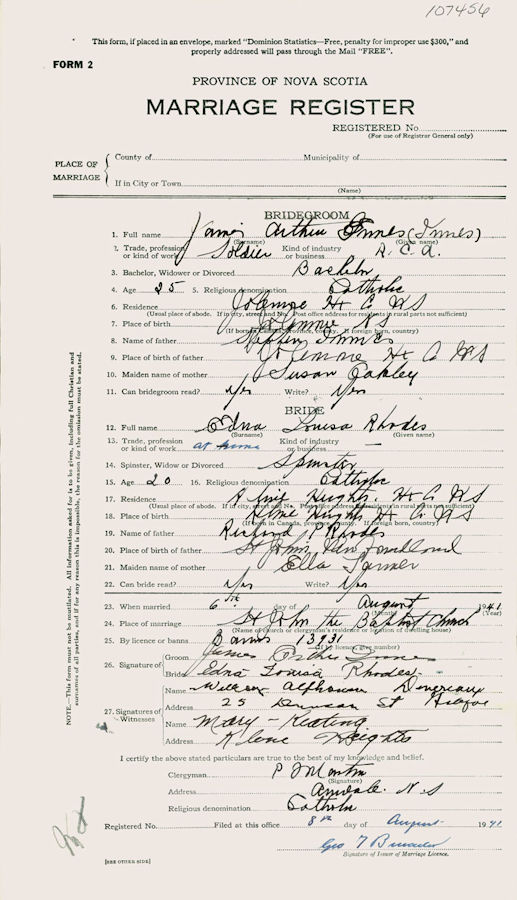 107456
This form, if placed in an envelope, marked "Dominion Statistics—Free, penalty for improper use $300," and
properly addressed will pass through the Mail "FREE".
FORM 2
PROVINCE OF NOVA SCOTIA
MARRIAGE REGISTER
REGISTERED No.
(For use of Registrar General only)
PLACE OF MARRIAGE
County of Municipality of
If in City or Town
(Name)
BRIDEGROOM
1. Full name James Arthur Innes (Innes)
(Surname) (Given name)
2. Trade, profession or kind of work Soldier Kind of industry or business R. C. A.
3. Bachelor, Widower or Divorced Bachelor
4. Age 25 5. Religious denomination Catholic
6. Residence Hx Co NS
(Usual place of abode. If in city, street and No. Post office address for residents in rural parts not sufficient)
7. Place of birth NS
(If born in Canada, province, county. If foreign born, country)
8. Name of father Stephen Innes
9. Place of birth of father Hx Co NS
10. Maiden name of mother Susan Oakley
11. Can bridegroom read? Yes Write? Yes
BRIDE
12. Full name Edna Louisa Rhodes
(Surname) (Given name)
13. Trade, profession or kind of work at home Kind of industry or business —
14. Spinster, Widow or Divorced Spinster
15. Age 20 16. Religious denomination Catholic
17. Residence Hx Co NS
(Usual place of abode. If in city, street and No. Post office address for residents in rural parts not sufficient)
18. Place of birth Hx Co NS
(If born in Canada, province, county. If foreign born, country)
19. Name of father Richard P Rhodes
20. Place of birth of father St Johns, Newfoundland
21. Maiden name of mother Ella
22. Can bride read? Yes Write? Yes
23. When married 6th day of August 1941
(Month)
24. Place of marriage St John the Baptist Church
(Name of church or clergyman's residence or location of dwelling house)
25. By licence or banns Banns 13931
(If by licence, give number)
26. Signature of Groom James Arthur Innes
Bride Edna Louisa Rhodes
27. Signatures of Witnesses
Name Alphonsus Devereaux
Address 25 St Halifax
Name Mary Keating
Address Heights
I certify the above stated particulars are true to the best of my knowledge and belief.
Clergyman P Martin
(Signature)
Address Armdale N.S
Religious denomination Catholic
Registered No. Filed at this office 8th day of August 1941
Geo T
Signature of Issuer of Marriage Licence.
[SEE OTHER SIDE]
NOTE.—This form must not be mutilated. All information asked for is to be given, including full Christian and
surnames of all parties, and if for any reason this is impossible, the reason for the omission must be stated.